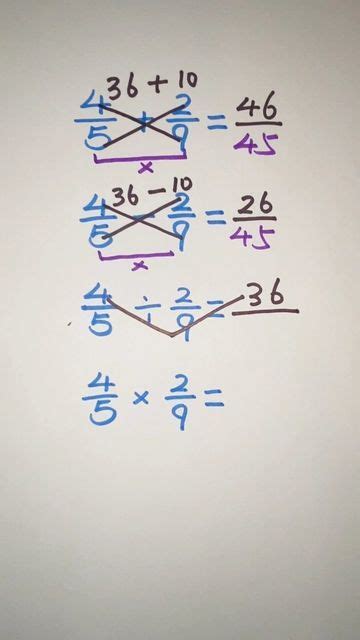 36 + 10
4/5 + 2/9 = 46/45
x
36 - 10
4/5 - 2/9 = 26/45
x
4/5 ÷ 2/9 = 36
4/5 × 2/9 =